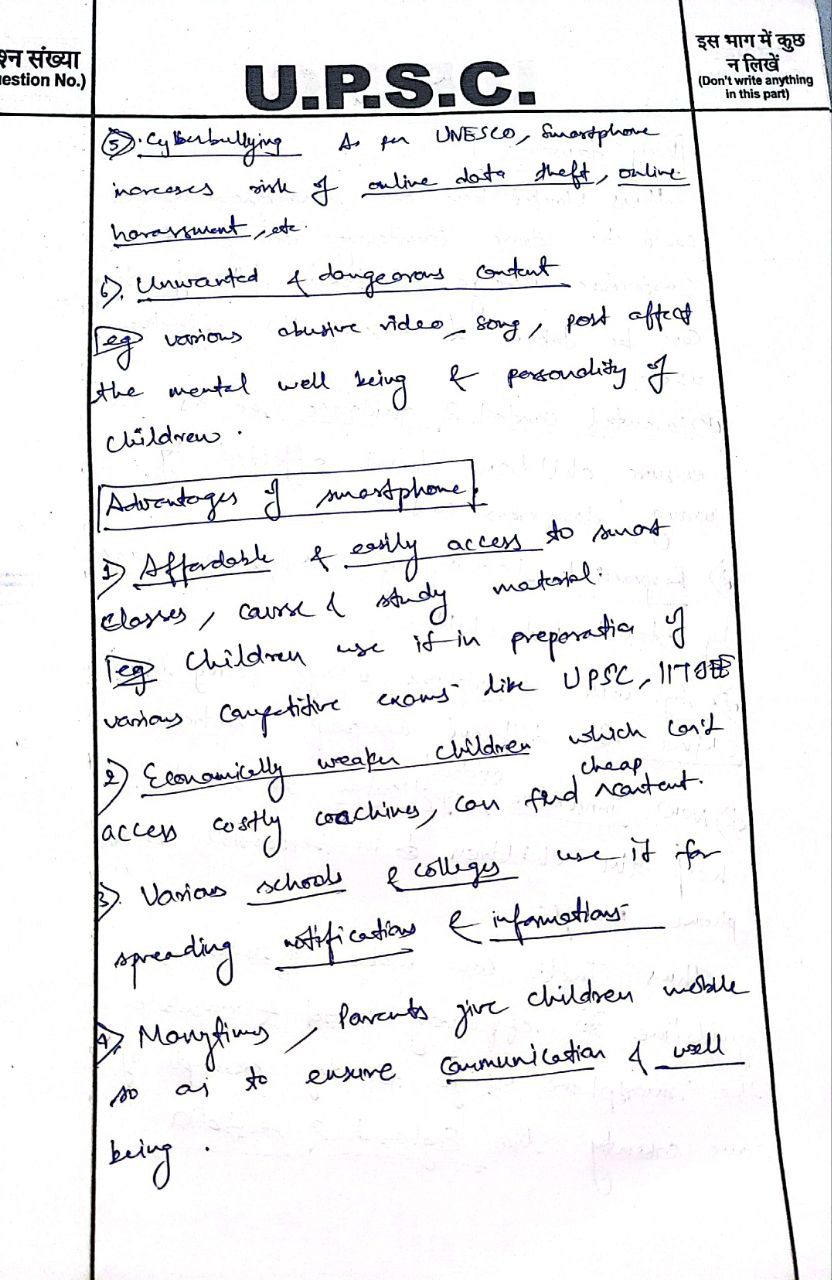 श्न संख्या
estion No.)
U.P.S.C.
इस भाग में कुछ
न लिखें
(Don't write anything
in this part)
5). Cyberbullying As per UNESCO, Smartphone
increases risk of online data theft, online
harassment, etc.
6). Unwanted & dangeorous content
eg various abusive video, song, post affect
the mental well being & personality of
children.
Advantages of smartphone
1) Affordable & easily access to smart
classes, course & study material.
eg Children use it in preparation of
various competitive exams like UPSC, IIT JEE
2) Economically weaker children which can't
access costly coachings, can find cheap content.
3). Various schools & colleges use it for
spreading notifications & informations.
4). Manytimes, Parents give children mobile
so as to ensure communication & well
being.